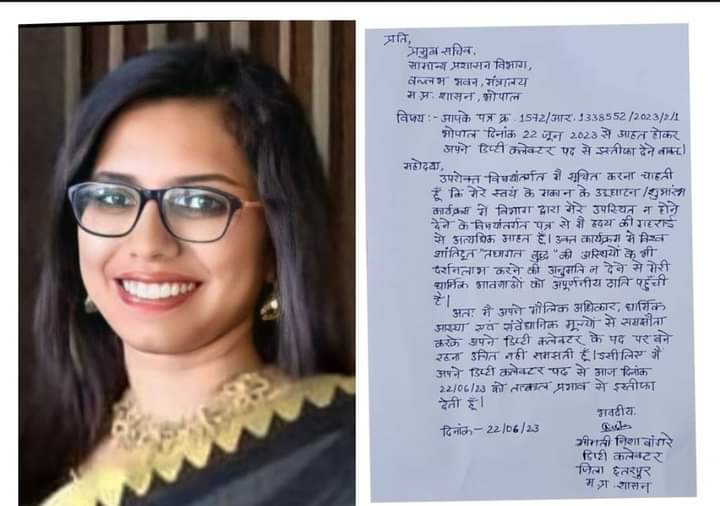 प्रति,
प्रमुख सचिव,
सामान्य प्रशासन विभाग,
वल्लभ भवन, मंत्रालय
म.प्र. शासन, भोपाल
विषय :- आपके पत्र क्र. 1572/आर. 1338552/2023/2/1
भोपाल दिनांक 22 जून 2023 से आहत होकर
अपने डिप्टी कलेक्टर पद से इस्तीफा देने बाबत।
महोदया,
उपरोक्त विषयांतर्गत मैं सूचित करना चाहती
हूँ कि मेरे स्वयं के मकान के उद्घाटन /शुभारंभ
कार्यक्रम में विभाग द्वारा मेरे उपस्थित न होने
देने के विषयांतर्गत पत्र से मैं हृदय की गहराई
से अत्यधिक आहत हूँ। उक्त कार्यक्रम में विश्व
शांतिदूत "तथागत बुद्ध" की अस्थियों के भी
दर्शनलाभ करने की अनुमति न देने से मेरी
धार्मिक भावनाओं को अपूर्णनीय क्षति पहुँची
है।
अतः मैं अपने मौलिक अधिकार, धार्मिक
आस्था एवं संवैधानिक मूल्यों से समझौता
करके अपने डिप्टी कलेक्टर के पद पर बने
रहना उचित नहीं समझती हूँ। इसीलिए मैं
अपने डिप्टी कलेक्टर पद से आज दिनांक
22/06/23 को तत्काल प्रभाव से इस्तीफा
देती हूँ।
भवदीय
दिनांक - 22/06/23
श्रीमती निशा बांगरे
डिप्टी कलेक्टर
जिला छतरपुर
म.प्र. शासन